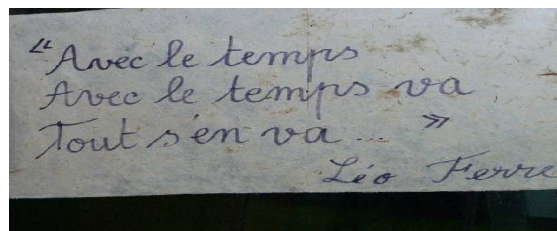 “Avec le temps
Avec le temps va
Tout s'en va... »
Léo Ferre